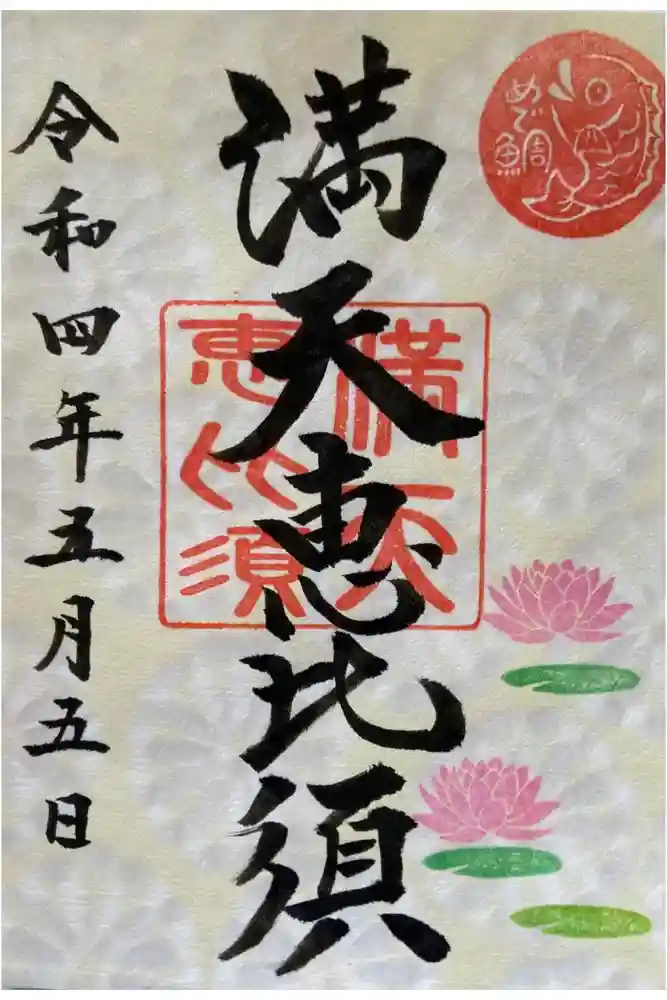 めで鯛
満天恵比須
満天
恵比須
令和四年五月五日